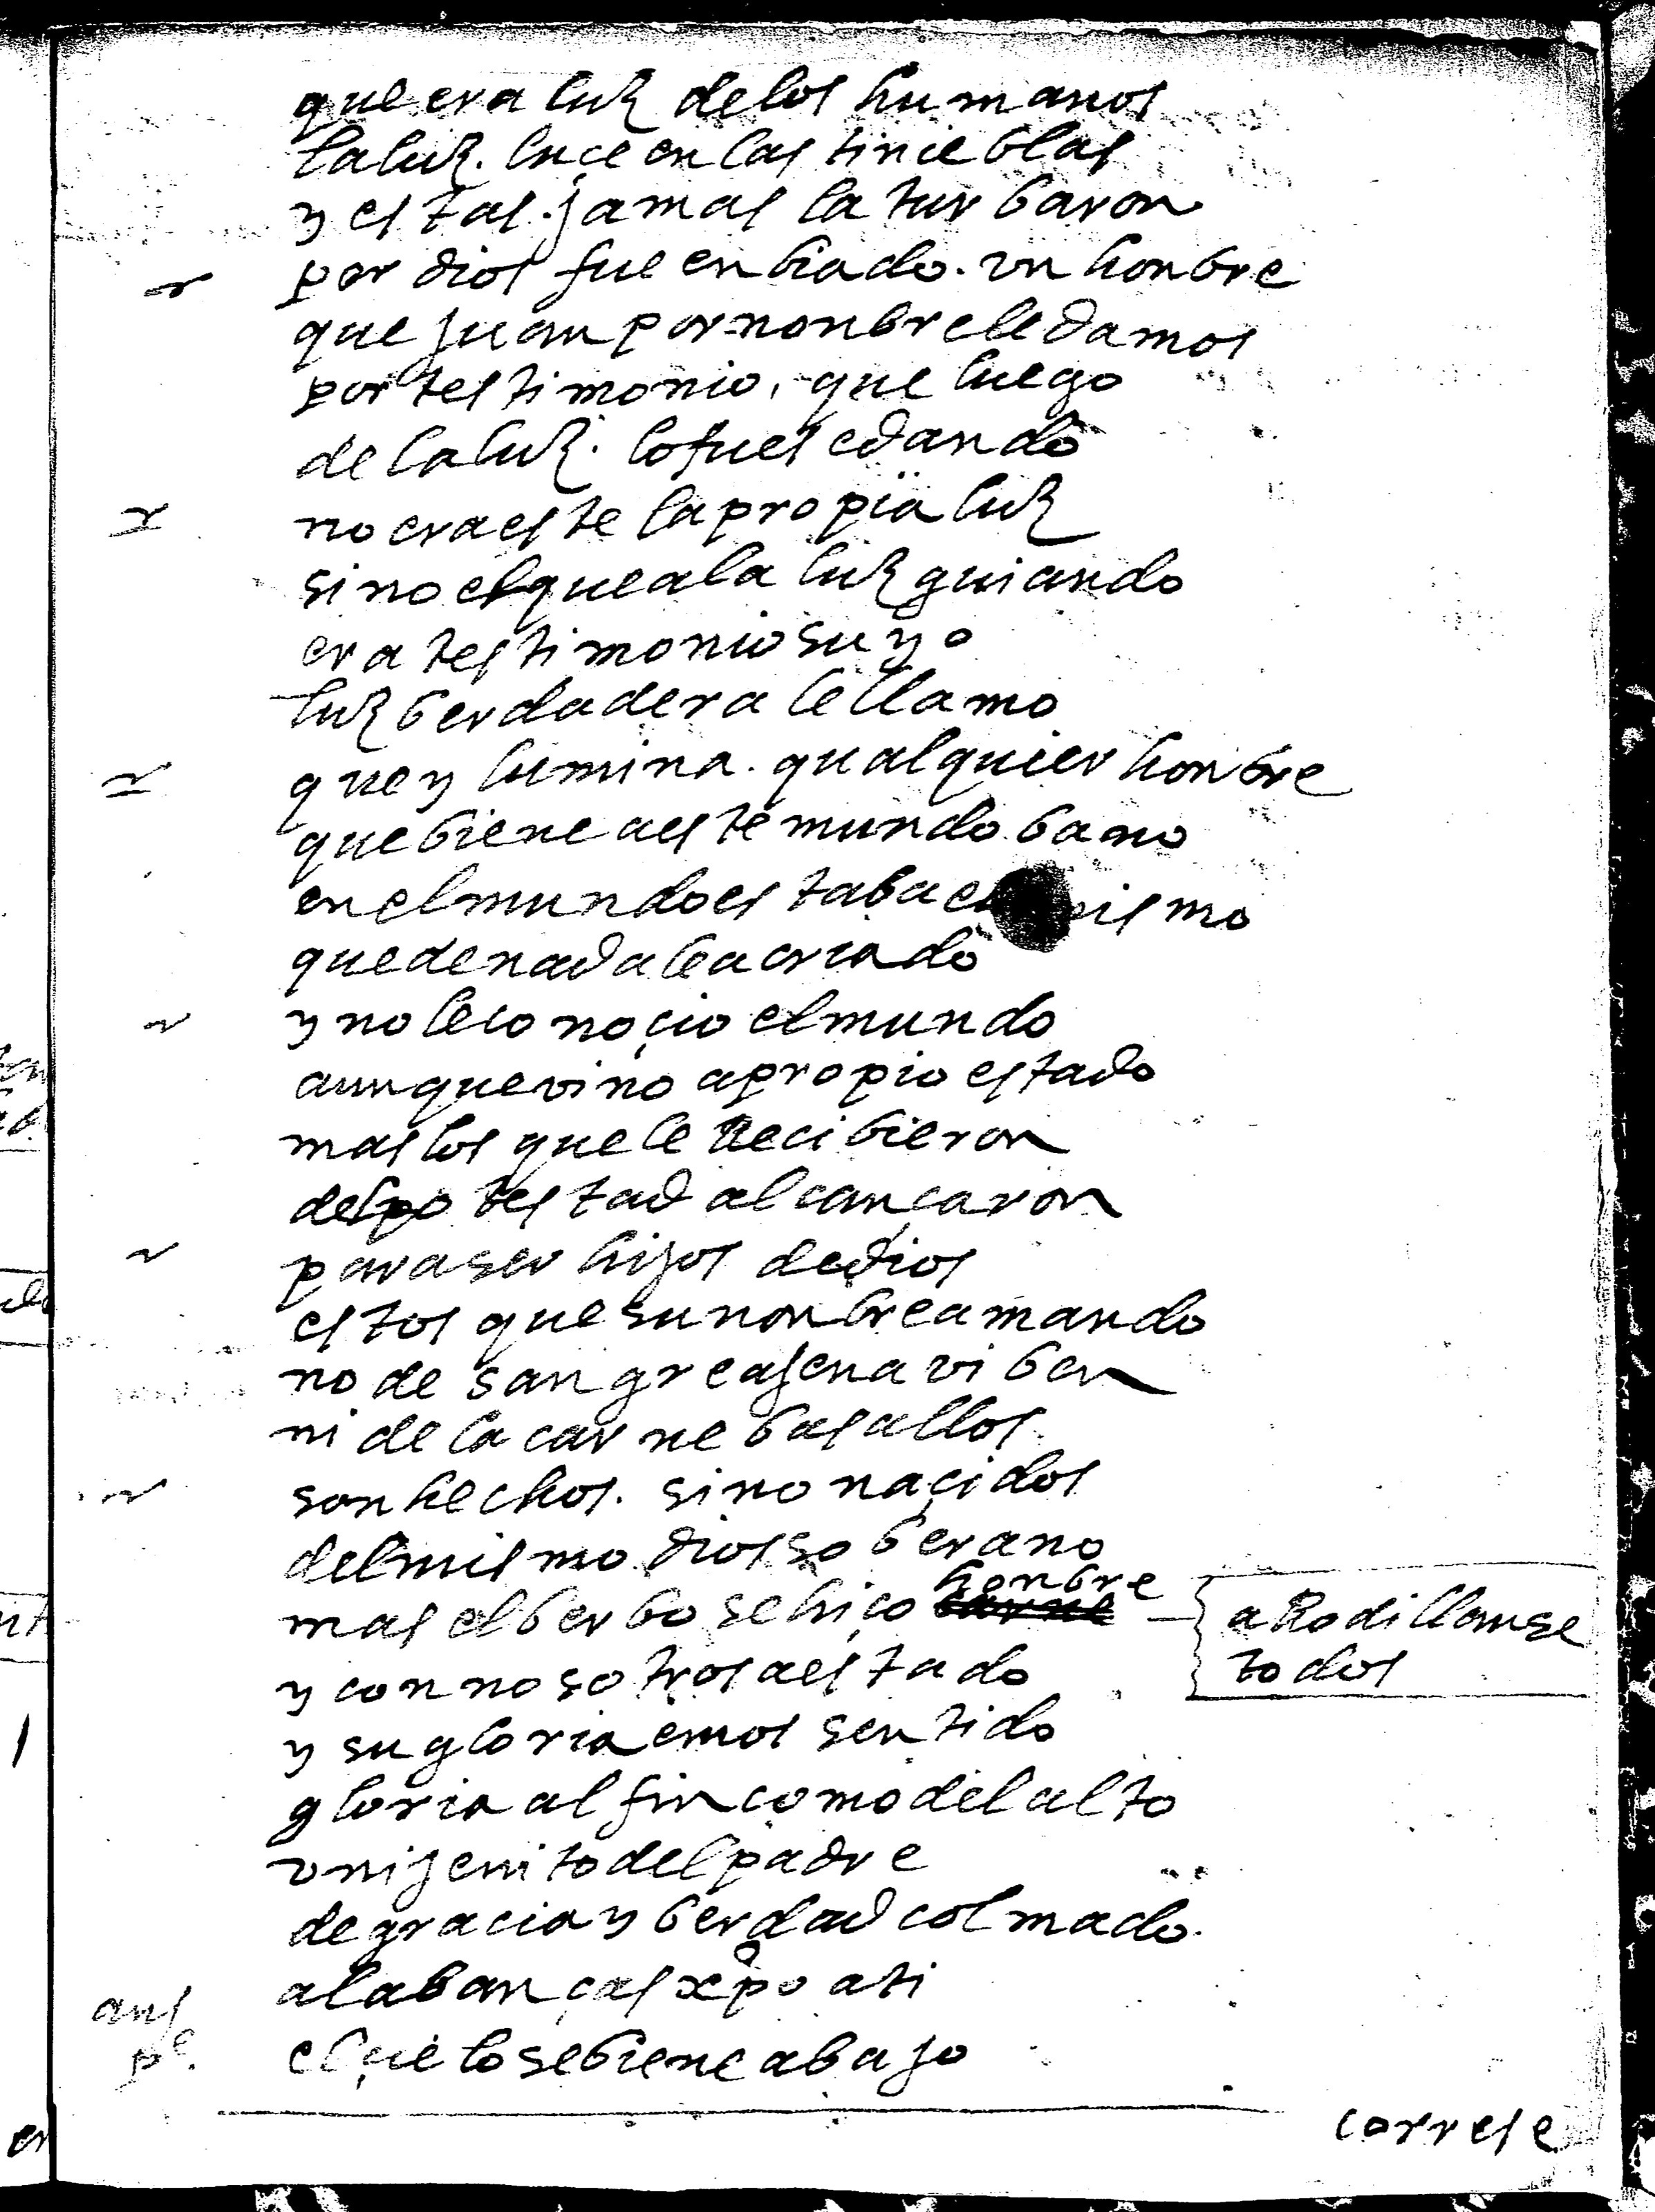 que era luz de los humanos
la luz. luçe en las tinieblas
y estas. jamas la turbaron
por dios fue enbiado. un honbre
que juan por nonbre le damos
por testimonio, que luego
de la luz. lo fuese dando
no era este la propia luz
sino el que a la luz guiando
era testimonio suyo
luz berdadera le llamo
que ylumina. qualquier honbre
que biene a este mundo bano
en el mundo estaba el mismo
que de nada le a criado
y no le conoçio el mundo
aunque vino a propio estado
mas los que le Recibieron
del potestad alcançaron
para ser hijos de dios
estos que su nonbre amando
no de sangre ajena viben
ni de la carne basallos
son hechos. sino naçidos
del mismo dios soberano
honbre
mas el berbo se hiço carne
aRodillanse
todos
y con nosotros a estado
y su gloria emos sentido
gloria al fin como del alto
unijenito del padre
de gracia y berdad colmado.
alabanças xpo a ti
el çielo se biene abajo
correse